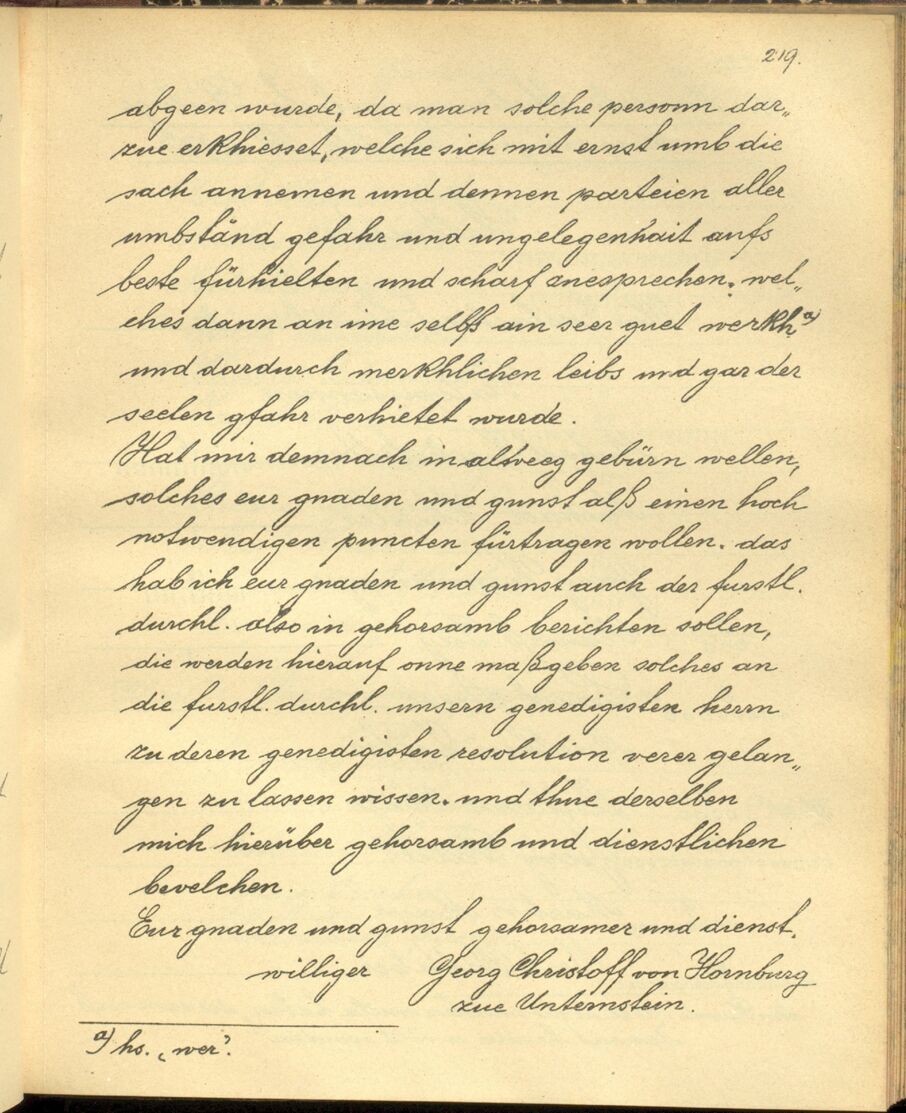 219.
abgeen wurde, da man solche personn dar„
zue erkhiesset, welche sich mit ernst umb die
sach annemen und dennen parteien aller
umbständ gefahr und ungelegenhait aufs
beste fürhielten und scharf znesprechen. wel„
ches dann an ime selbß ain seer guet werkh a)
und dardurch merkhlichen leibs und gar der
seelen gfahr verhietet wurde.
Hat mir demnach in alweeg gebürn wellen,
solches eur gnaden und gunst alß einen hoch
notwendigen puncten fürtragen wollen. das
hab ich eur gnaden und gunst auch der furstl.
durchl. also in gehorsamb berichten sollen,
die werden hierauf onne maßgeben solches an
die furstl. durchl. unsern genedigisten herrn
zu deren genedigisten resolution verer gelan„
gen zu lassen wissen. und thue derselben
mich hierüber gehorsamb und dienstlichen
bevelchen.
Eur gnaden und gunst gehorsamer und dienst.
williger Georg Christoff von Hornburg
zue Unternstein.
a) hs. „wer".